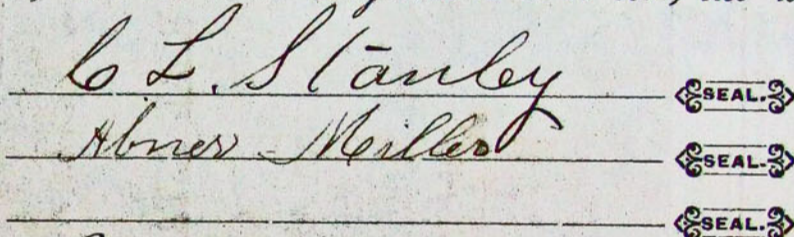 C L. Stanley SEAL.
Abner Miller SEAL.
SEAL.